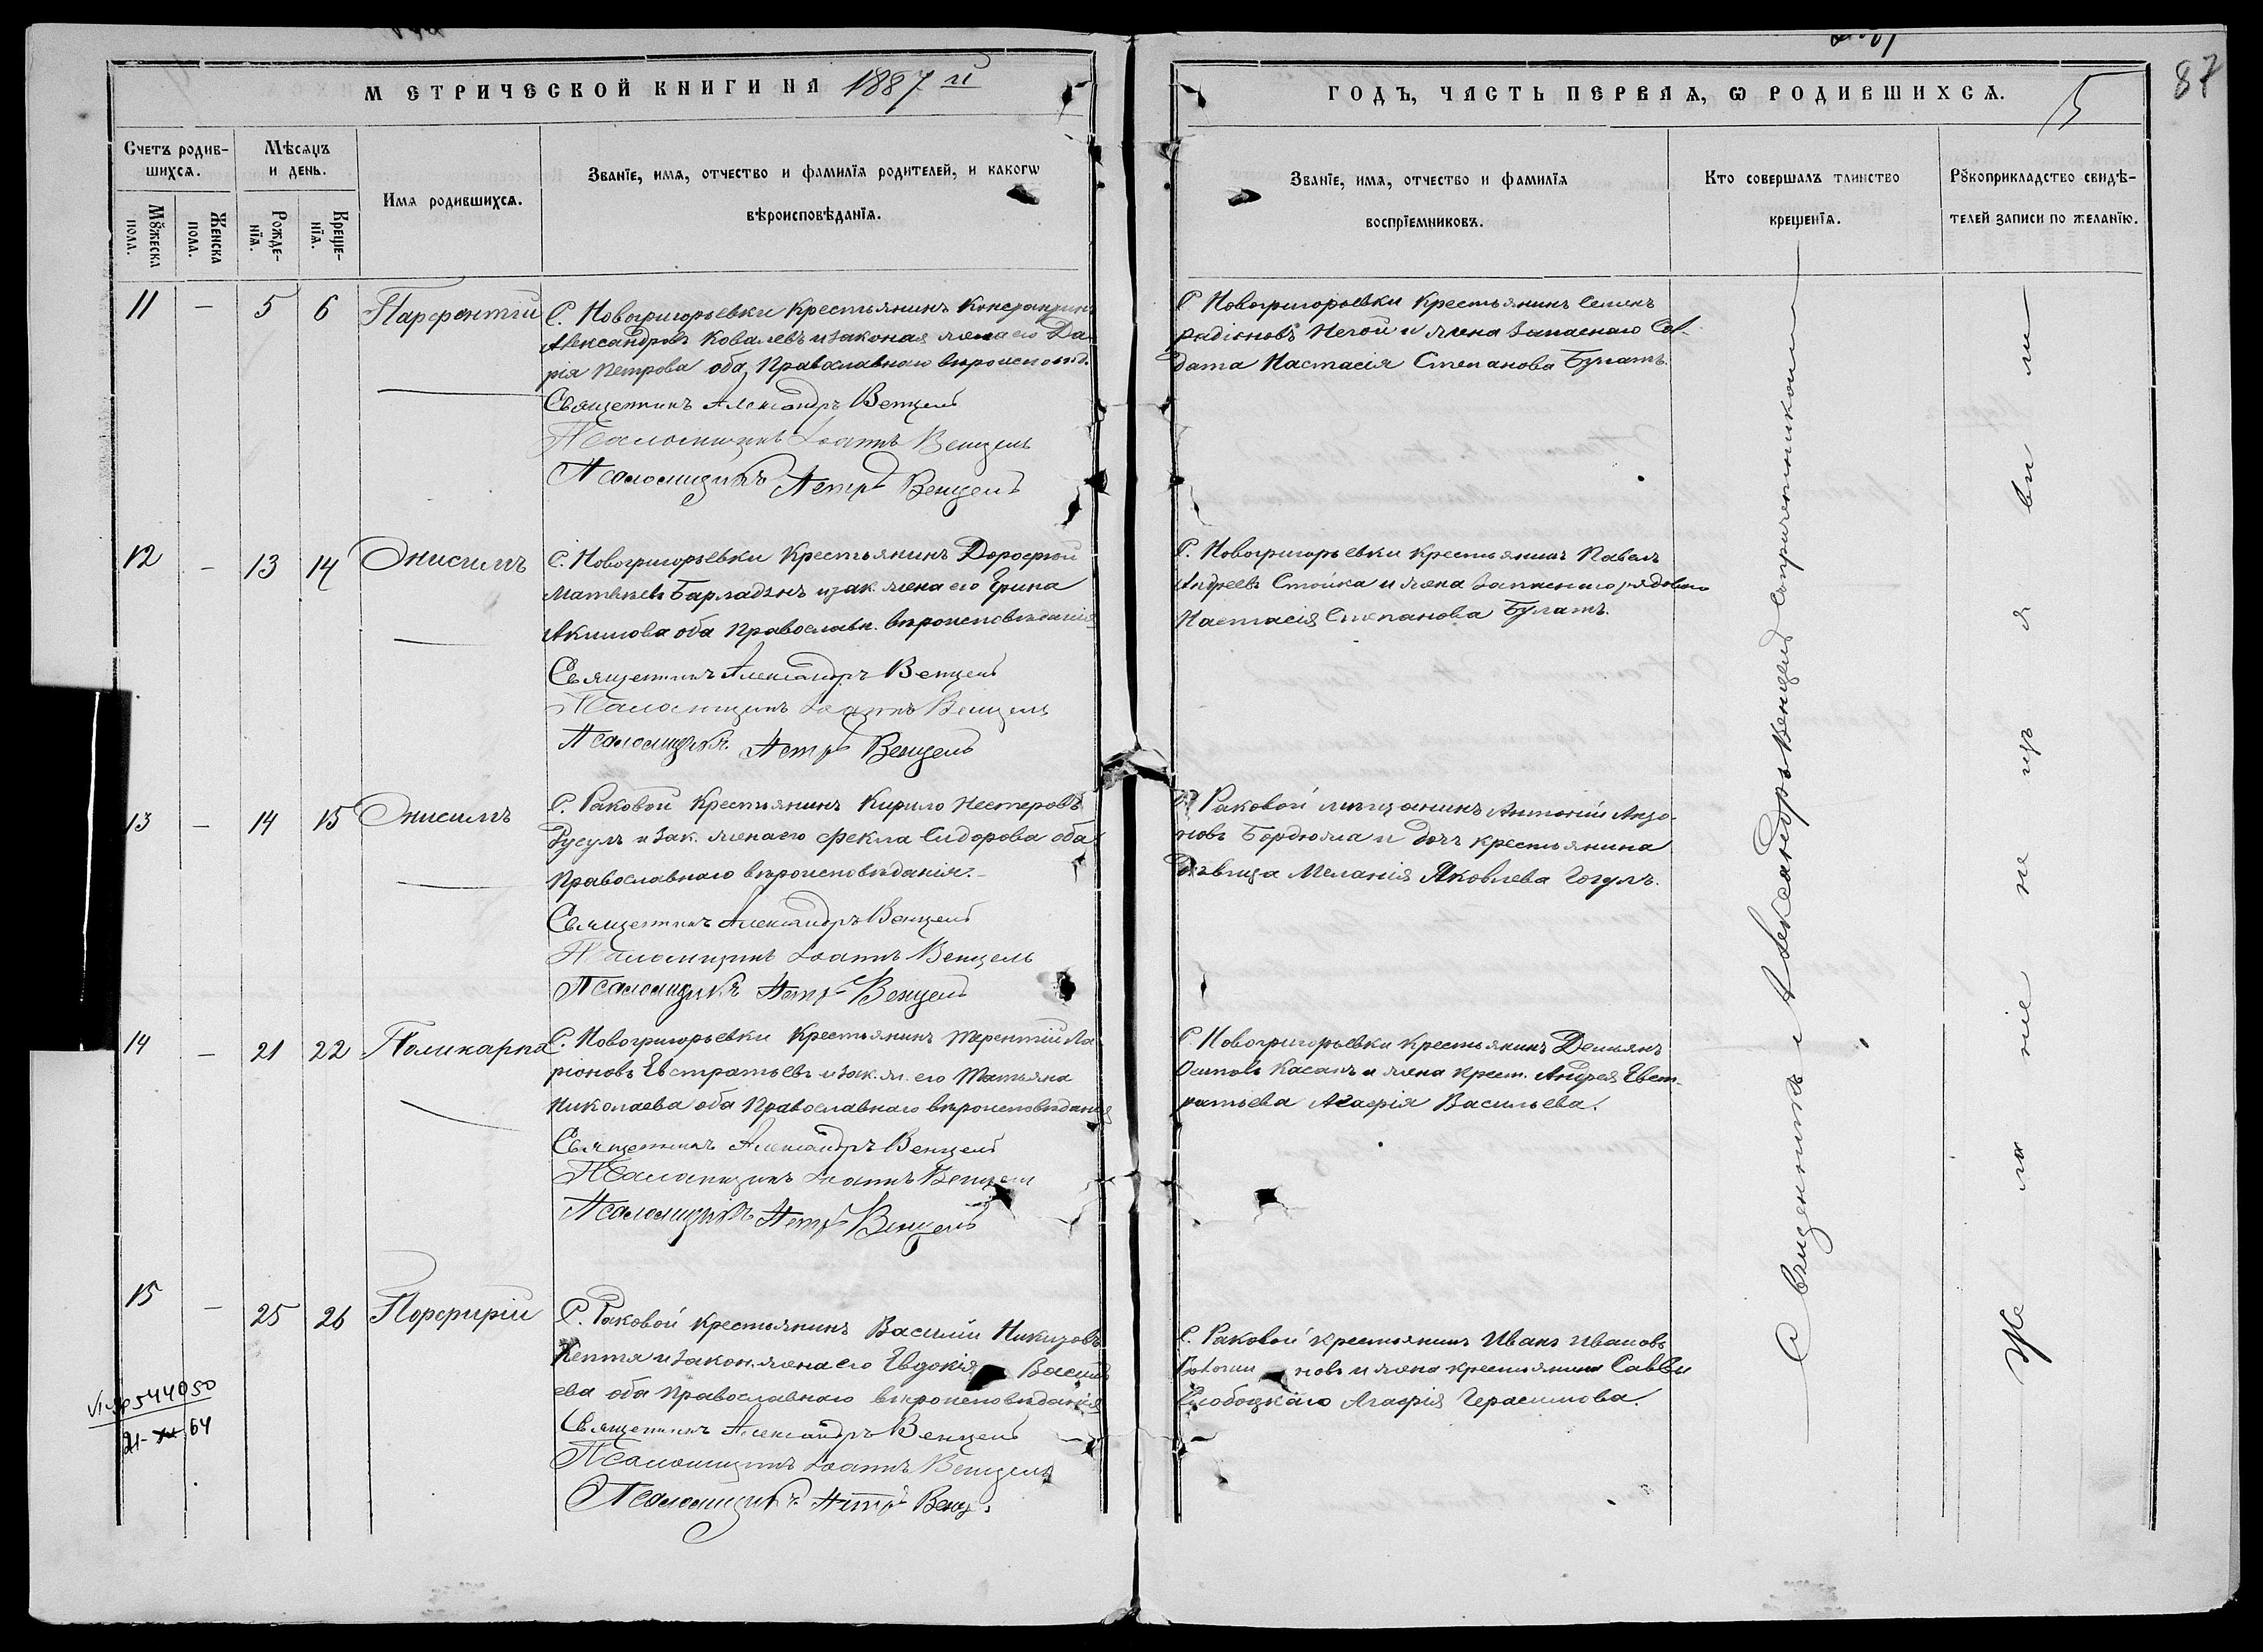 МЕТРИЧЕСКОЙ КНИГИ НА 1887 й
ГОДЪ, ЧАСТЬ ПЕРВАЯ, Ѡ РОДИВШИХСЯ.
5
87
Счетъ родив-
шихся.
Мѣсяцъ
и день.
Имя родившихся.
Званїе, имя, отчество и фамилїя родителей, и какогѡ
вѣроисповѣданїя.
Мꙋжеска
пола.
Женска
пола.
Рожде-
нїя.
Креще-
нїя.
Званїе, имя, отчество и фамилїя
воспрїемниковъ.
Кто совершалъ таинство
крещенїя.
Рꙋкоприкладство свидѣ-
телей записи по желанїю.
11 — 5 6 Парфентій С. Новогригорьевки Крестьянинъ Константинъ
Александровъ Ковалевъ и законая жена его Да-
рія Петрова оба Православнаго вѣроисповѣд.
Священникъ Александръ Венцель
Псаломщикъ Іоаннъ Венцель
Псаломщикъ Петръ Венцель
С. Новогригорьевки Крестьянинъ Семенъ
Радіоновъ Негой и жена Запаснаго Сол-
дата Настасія Степанова Булатъ.
12 — 13 14 Онисимъ С. Новогригорьевки Крестьянинъ Дорофтей
Матвѣевъ Барладянъ и зак. жена его Ірина
Акимова оба Православн. вѣроисповѣданія
Священникъ Александръ Венцель
Псаломщикъ Іоаннъ Венцель
Псаломщикъ Петръ Венцель
С. Новогригорьевки крестьянинъ Павелъ
Андреевъ Стойка и жена Запаснаго рядоваго
Настасія Степанова Булатъ.
13 — 14 15 Онисимъ С. Раковой Крестьянинъ Кирило Нестеровъ
Русулъ и Зак. жена его Фекла Сидорова оба
Православнаго вѣроисповѣданія.
Священникъ Александръ Венцель
Псаломщикъ Іоаннъ Венцель
Псаломщикъ Петръ Венцель
С. Раковой мѣщанинъ Антоній Анто-
новъ Бордюжа и дочь крестьянина
Дѣвица Меланія Яковлева Гогулъ.
14 — 21 22 Поликарпъ С. Новогригорьевки Крестьянинъ Терентій Ла-
ріоновъ Евстратьевъ и зак. ж. его Татьяна
Николаева оба Православнаго вѣроисповѣданія
Священникъ Александръ Венцель
Псаломщикъ Іоаннъ Венцель
Псаломщикъ Петръ Венцель
С. Новогригорьевки крестьянинъ Демьянъ
Осиповъ Касапъ и жена крест. Андрея Евст-
ратьева Агафія Васильева.
15 — 25 26 Порфирій С. Раковой крестьянинъ Василій Никитовъ
Кептя и закон. жена его Евдокія Василь-
ева оба Православнаго вѣроисповѣданія
Священникъ Александръ Венцель
Псаломщикъ Іоаннъ Венцель
Псаломщикъ Петръ Венц.
С. Раковой крестьянинъ Иванъ Ивановъ
новъ и жена крестьянина Саввы
Слободскаго Агафія Герасимова.
544050
64
Священникъ Александръ Венцель съ причетникомъ
Желаніе не изъявили